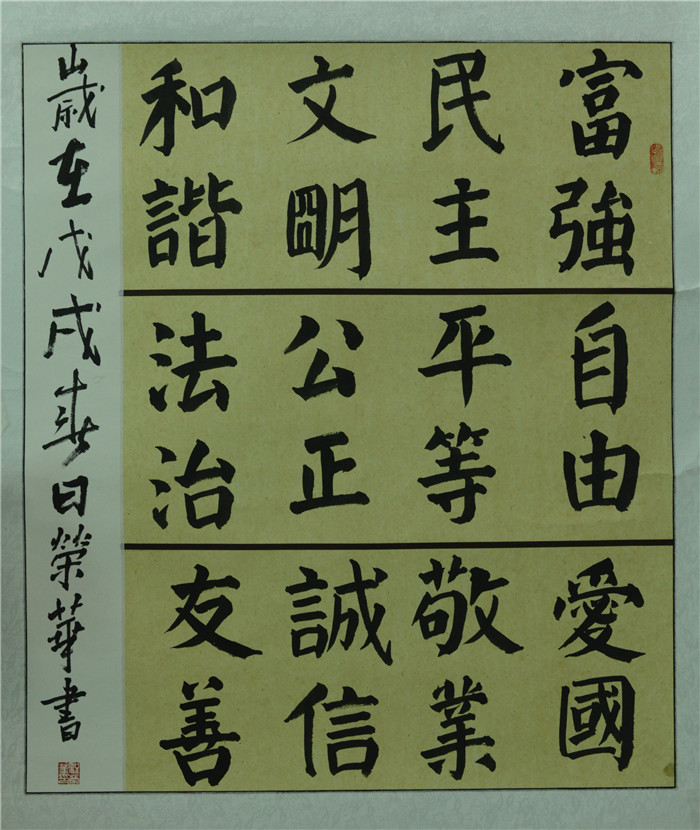 富強
民主
文明
和諧
自由
平等
公正
法治
愛國
敬業
誠信
友善
歲在戊戌春日榮華書